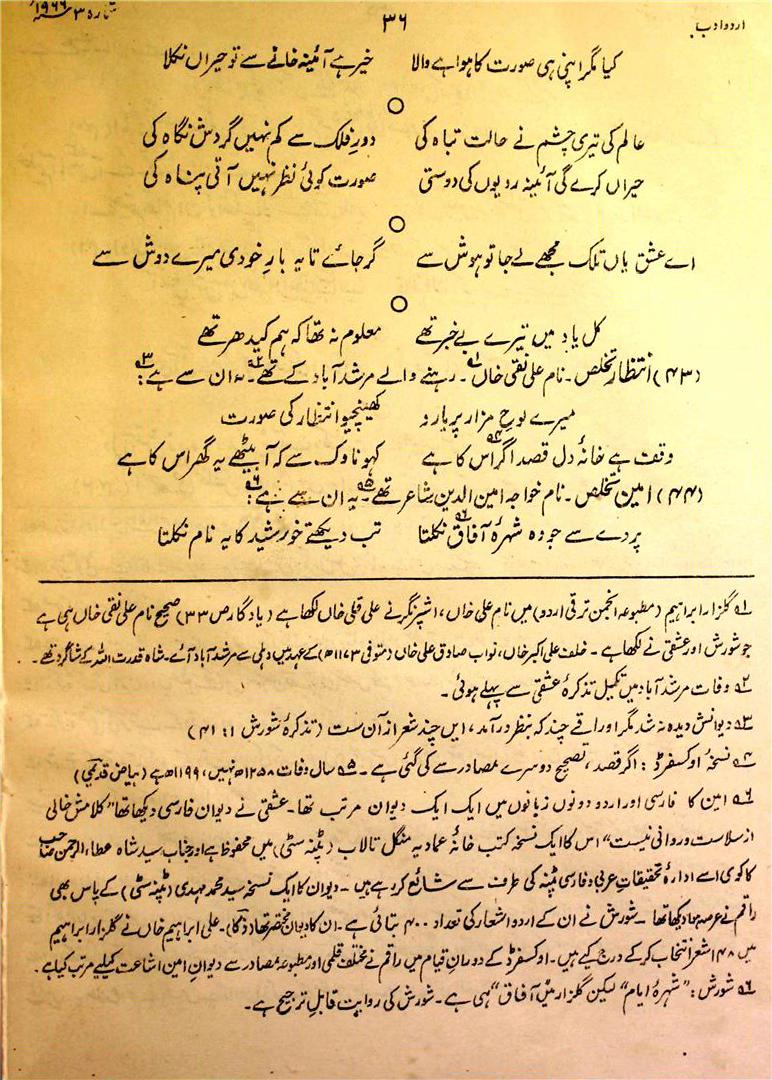 اردو ادب
۳۶
شمارہ ۳ سنہ ۱۹۶۶ء
کیا مگر اپنی ہی صورت کا ہوا ہے والا خیر ہے آئینہ خانے سے تو حیراں نکلا
عالم کی تیری چشم نے حالت تباہ کی دورِ فلک سے کم نہیں گردش نگاہ کی
حیراں کرے گی آئینہ رویوں کی دوستی صورت کوئی نظر نہیں آتی پناہ کی
اے عشق یاں تلک مجھے لے جا تو ہوش سے گر جائے تا یہ بارِ خودی میرے دوش سے
کل یاد میں تیرے بے خبر تھے معلوم نہ تھا کہ ہم کیدھر تھے
(۴۳) انتظار تخلص ۔ نام علی نقی خاں ۱؎ ۔ رہنے والے مرشد آباد کے تھے ۲؎ ۔ یہ ان سے ہے ۳؎ :
میرے لوحِ مزار پر یارو کھینچیو انتظار کی صورت
وقف ہے خانۂ دل قصد اگر ۴؎ اس کا ہے کہو ناوک سے کہ آ بیٹھے یہ گھر اس کا ہے
(۴۴) امین تخلص ۔ نام خواجہ امین الدین شاعر تھے ۵؎ ۔ یہ ان سے ہے ۶؎ :
پردے سے جو وہ شہرۂ آفاق ۶؎ نکلتا تب دیکھتے خورشید کا یہ نام نکلتا
۱؎ گلزار ابراہیم (مطبوعہ انجمن ترقی اردو) میں نام علی خاں، اشپرنگر نے علی قلی خاں لکھا ہے (یادگار ص ۳۳) صحیح نام علی نقی خاں ہی ہے
جو شورش اور عشقی نے لکھا ہے ۔ خلف علی اکبر خاں، نواب صادق علی خاں (متوفی ۱۱۷۳ھ) کے عہد میں دہلی سے مرشد آباد آئے ۔ شاہ قدرت اللہ کے شاگرد تھے ۔
۲؎ وفات مرشد آباد میں تکمیل تذکرۂ عشقی سے پہلے ہوئی ۔
۳؎ دیوانش دیدہ نہ شد مگر اوراقے چند کہ بنظر درآمد، ایں چند شعر از آن ست (تذکرۂ شورش ۱ : ۴۱)
۴؎ نسخۂ اوکسفرڈ : اگر قصد، تصحیح دوسرے مصادر سے کی گئی ہے ۔ ۵؎ سال وفات ۱۲۵۸ھ نہیں، ۱۱۹۹ھ ہے (بیاض قدیمی)
۶؎ امین کا فارسی اور اردو دونوں زبانوں میں ایک ایک دیوان مرتب تھا ۔ عشقی نے دیوان فارسی دیکھا تھا "کلامش خالی
از سلاست و روانی نیست" اس کا ایک نسخہ کتب خانۂ عمادیہ منگل تالاب (پٹنہ سٹی) میں محفوظ ہے اور جناب سید شاہ عطاء الرحمن صاحب
کاکوی اسے ادارۂ تحقیقات عربی و فارسی پٹنہ کی طرف سے شائع کر رہے ہیں ۔ دیوان کا ایک نسخہ سید محمد مہدی (پٹنہ سٹی) کے پاس بھی
راقم نے عرصہ ہوا دیکھا تھا ۔ شورش نے ان کے اردو اشعار کی تعداد ۴۰۰ بتائی ہے ۔ ان کا دیوان مختصر تھا (ذکا) ۔ علی ابراہیم خاں نے گلزار ابراہیم
میں ۴۸ اشعر انتخاب کر کے درج کیے ہیں ۔ اوکسفرڈ کے دوران قیام میں راقم نے مختلف قلمی اور مطبوعہ مصادر سے دیوانِ امین اشاعت کیلیے مرتب کیا ہے ۔
۶؎ شورش : "شہرۂ ایام" لیکن گلزار میں "آفاق" ہی ہے ۔ شورش کی روایت قابلِ ترجیح ہے ۔